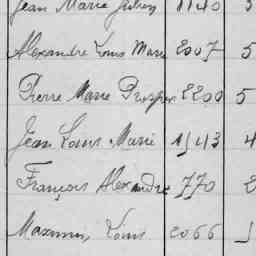 Jean Marie Julien 1140
Alexandre Louis Marie 2007 5
Pierre Marie Prosper 2200 5
Jean Louis Marie 1543 4
François Alexandre 770 2
Louis 2066